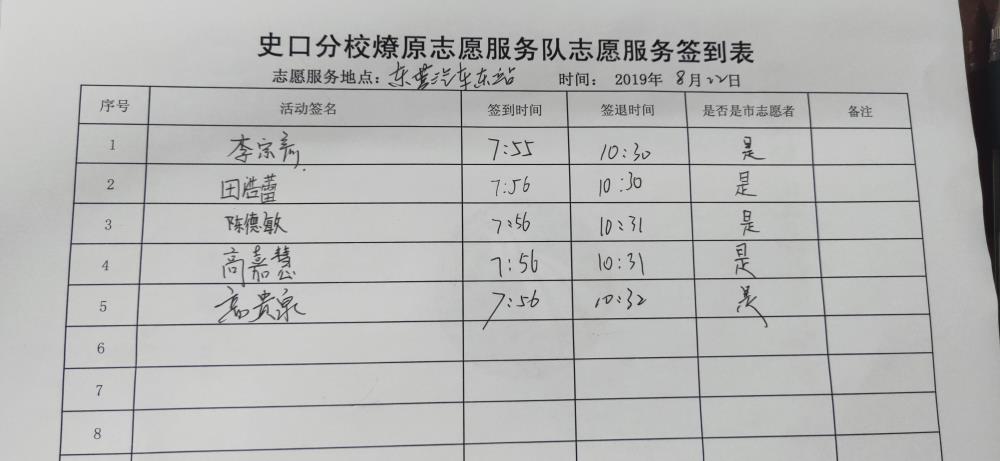 史口分校燎原志愿服务队志愿服务签到表
志愿服务地点：东营汽车东站 时间： 2019年 8月22日
序号 活动签名 签到时间 签退时间 是否是市志愿者 备注
1 李宗 7:55 10:30 是
2 田浩蕾 7:56 10:30 是
3 陈德敏 7:56 10:31 是
4 高嘉慧 7:56 10:31 是
5 高贵泉 7:56 10:32 是
6
7
8